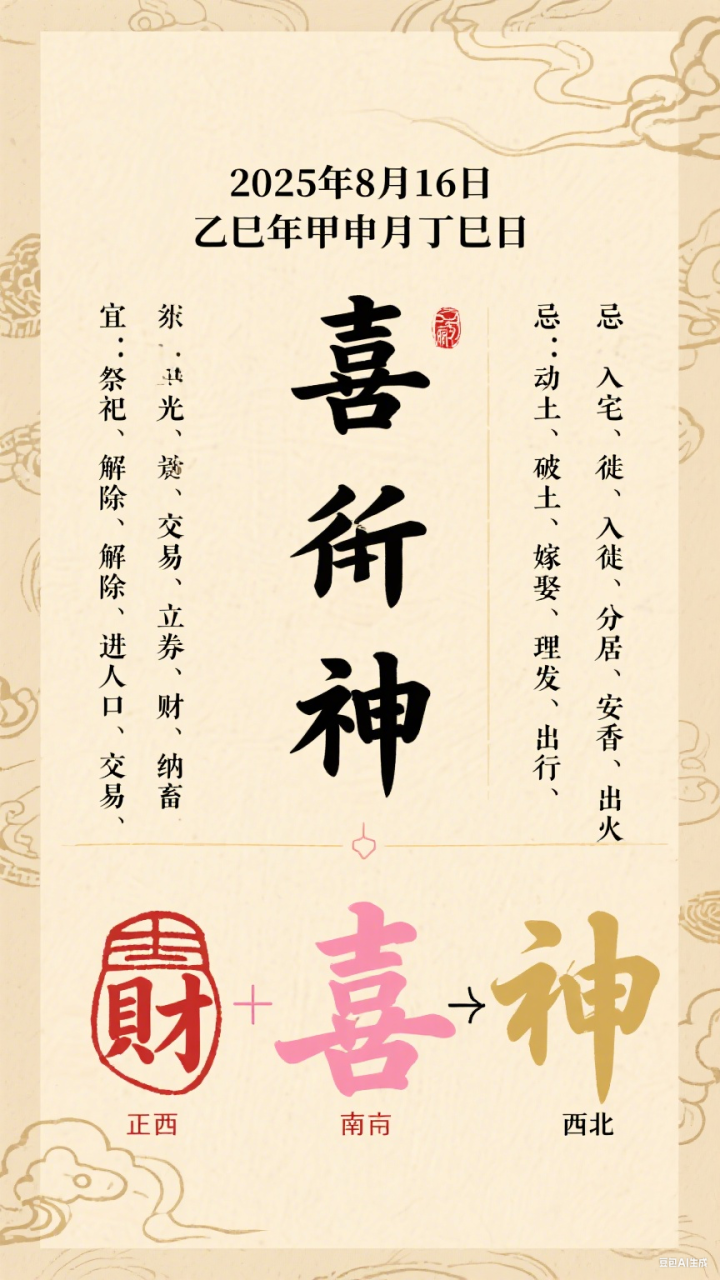 2025年8月16日
乙巳年甲申月丁巳日
宜：祭祀、解除、解除、进人口、交易、
光、交易、立券、财、纳畜
喜
神
忌：动土、破土、嫁娶、理发、出行、
忌 入宅、徙、入徙、分居、安香、出火
財
+
喜
→
神
正西
南南
西北
豆包AI生成